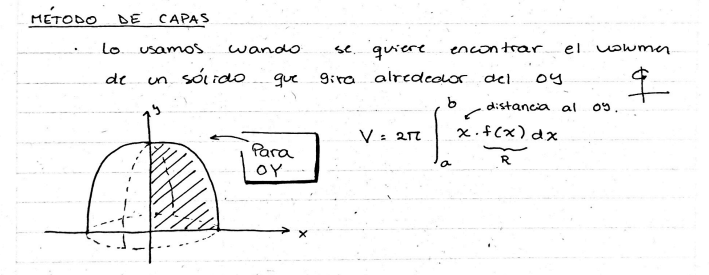 MÉTODO DE CAPAS
· Lo usamos cuando se quiere encontrar el volumen
de un sólido que gira alrededor del OY
y
Para
OY
x
V = 2π ∫ₐᵇ x · f(x) dx
distancia al OY.
R